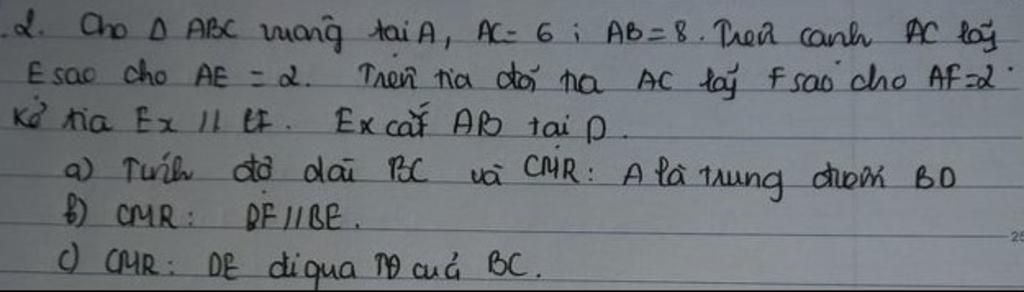 2. Cho Δ ABC vuông tại A, AC = 6 ; AB = 8. Trên cạnh AC lấy
E sao cho AE = 2. Trên tia đối tia AC lấy F sao cho AF = 2.
Kẻ tia Ex // BF. Ex cắt AB tại D.
a) Tính độ dài BC và CMR: A là trung điểm BD
b) CMR: DF // BE.
c) CMR: DE đi qua TĐ của BC.
25